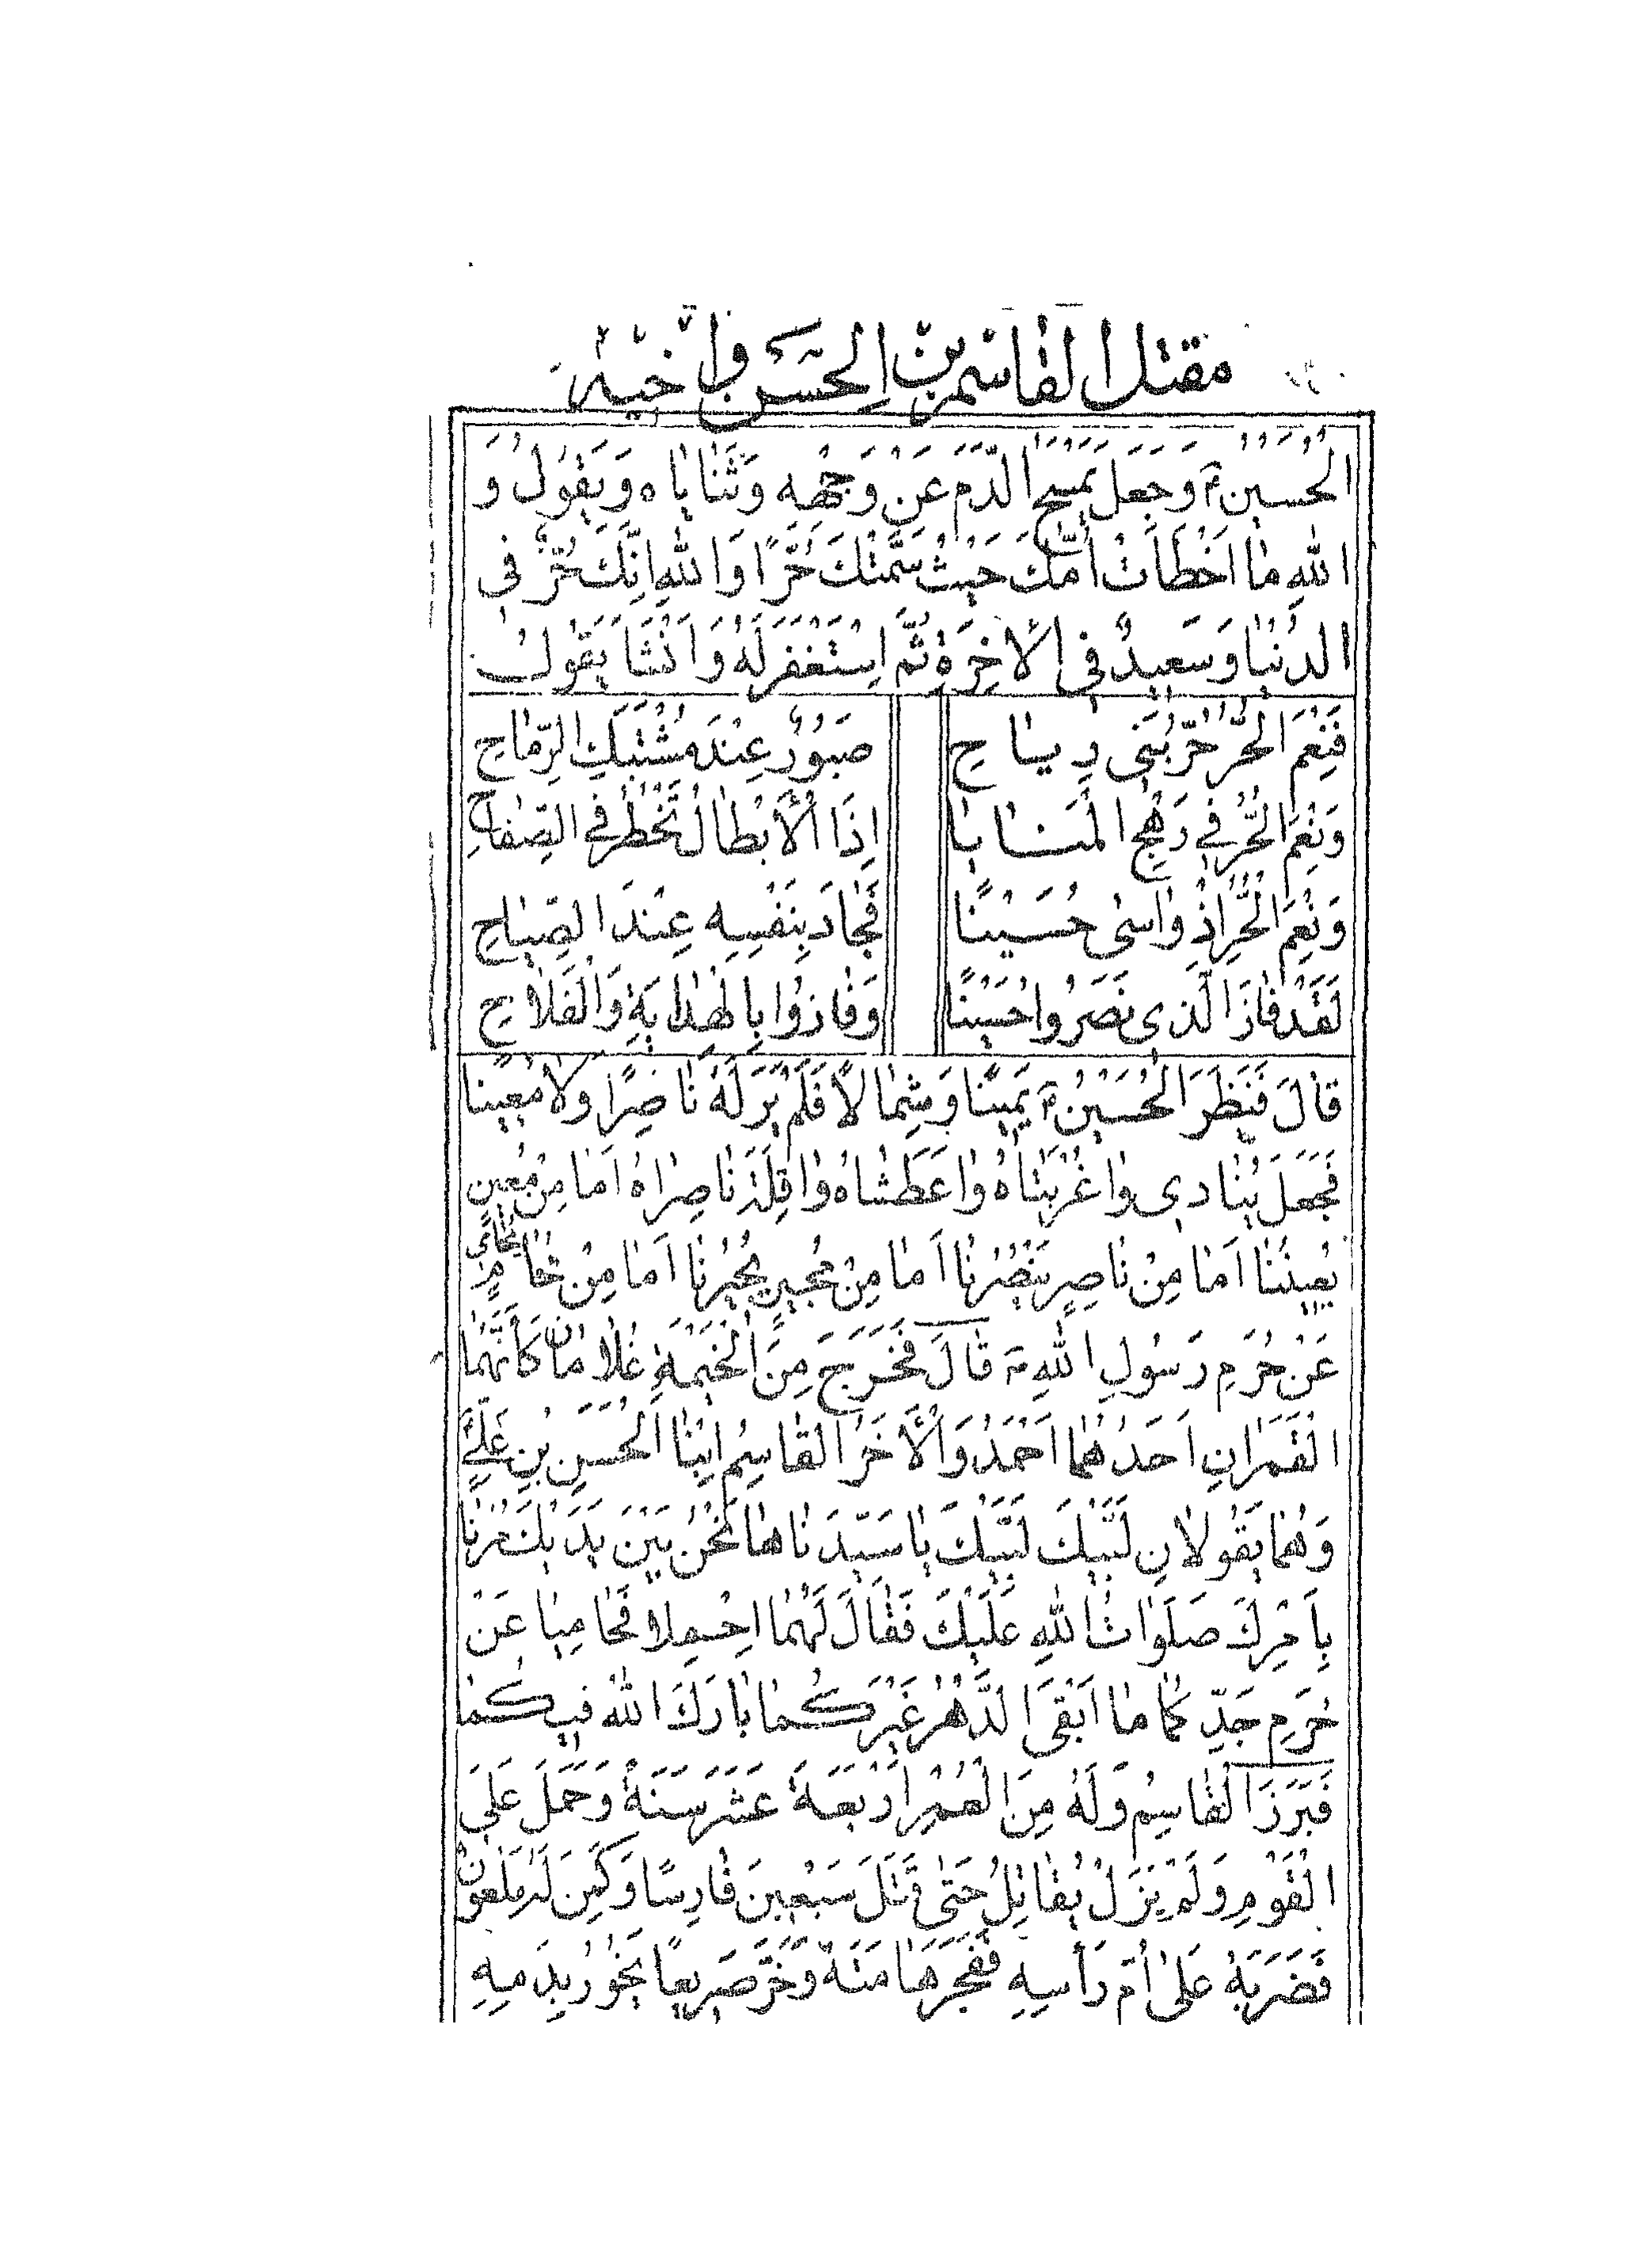 مقتل القاسم بن الحسن واخيه
الْحُسَيْنُ ع وَجَعَلَ يَمْسَحُ الدَّمَ عَنْ وَجْهِهِ وَثَنَايَاهُ وَيَقُولُ وَ
اللهِ مَا اَخْطَأَتْ اُمُّكَ حَيْثُ سَمَّتْكَ حُرًّا وَاللهِ اِنَّكَ حُرٌّ فِي
الدُّنْيَا وَسَعِيدٌ فِي الْاٰخِرَةِ ثُمَّ اسْتَغْفَرَ لَهُ وَاَنْشَأَ يَقُولُ
فَنِعْمَ الْحُرُّ حُرُّ بَنِي رِيَاحِ صَبُورٌ عِنْدَ مُشْتَبَكِ الرِّمَاحِ
وَنِعْمَ الْحُرُّ فِي رَهْجِ الْمَنَايَا اِذَا الْأَبْطَالُ تَخْطُرُ فِي الصِّفَاحِ
وَنِعْمَ الْحُرُّ اِذْ وَاسٰى حُسَيْنًا فَجَادَ بِنَفْسِهِ عِنْدَ الصِّيَاحِ
لَقَدْ فَازَ الَّذِي نَصَرُوا حُسَيْنًا وَفَازُوا بِالْهِدَايَةِ وَالْفَلَاحِ
قَالَ فَنَظَرَ الْحُسَيْنُ ع يَمِينًا وَشِمَالًا فَلَمْ يَرَ لَهُ نَاصِرًا وَلَا مُعِينًا
فَجَعَلَ يُنَادِي وَا غُرْبَتَاهُ وَا عَطَشَاهُ وَا قِلَّةَ نَاصِرَاهُ اَمَا مِنْ مُعِينٍ
يُعِينُنَا اَمَا مِنْ نَاصِرٍ يَنْصُرُنَا اَمَا مِنْ مُجِيرٍ يُجِيرُنَا اَمَا مِنْ مُحَامٍ يُحَامِي
عَنْ حُرَمِ رَسُولِ اللهِ ص قَالَ فَخَرَجَ مِنَ الْخَيْمَةِ غُلَامَانِ كَأَنَّهُمَا
الْقَمَرَانِ اَحَدُهُمَا اَحْمَدُ وَالْأٰخَرُ الْقَاسِمُ ابْنَا الْحَسَنِ بْنِ عَلِيٍّ
وَهُمَا يَقُولَانِ لَبَّيْكَ لَبَّيْكَ يَا سَيِّدَنَا هَا نَحْنُ بَيْنَ يَدَيْكَ مُرْنَا
بِأَمْرِكَ صَلَوَاتُ اللهِ عَلَيْكَ فَقَالَ لَهُمَا احْمِلَا فَحَامِيَا عَنْ
حُرَمِ جَدِّكُمَا مَا اَبْقَى الدَّهْرُ غَيْرَكُمَا بَارَكَ اللهُ فِيكُمَا
فَبَرَزَ الْقَاسِمُ وَلَهُ مِنَ الْعُمُرِ اَرْبَعَةَ عَشَرَ سَنَةً وَحَمَلَ عَلَى
الْقَوْمِ وَلَمْ يَزَلْ يُقَاتِلُ حَتّٰى قَتَلَ سَبْعِينَ فَارِسًا وَكَمَنَ لَهُ مَلْعُونٌ
فَضَرَبَهُ عَلٰى اُمِّ رَأْسِهِ فَفَجَرَ هَامَتَهُ وَخَرَّ صَرِيعًا يَخُورُ بِدَمِهِ